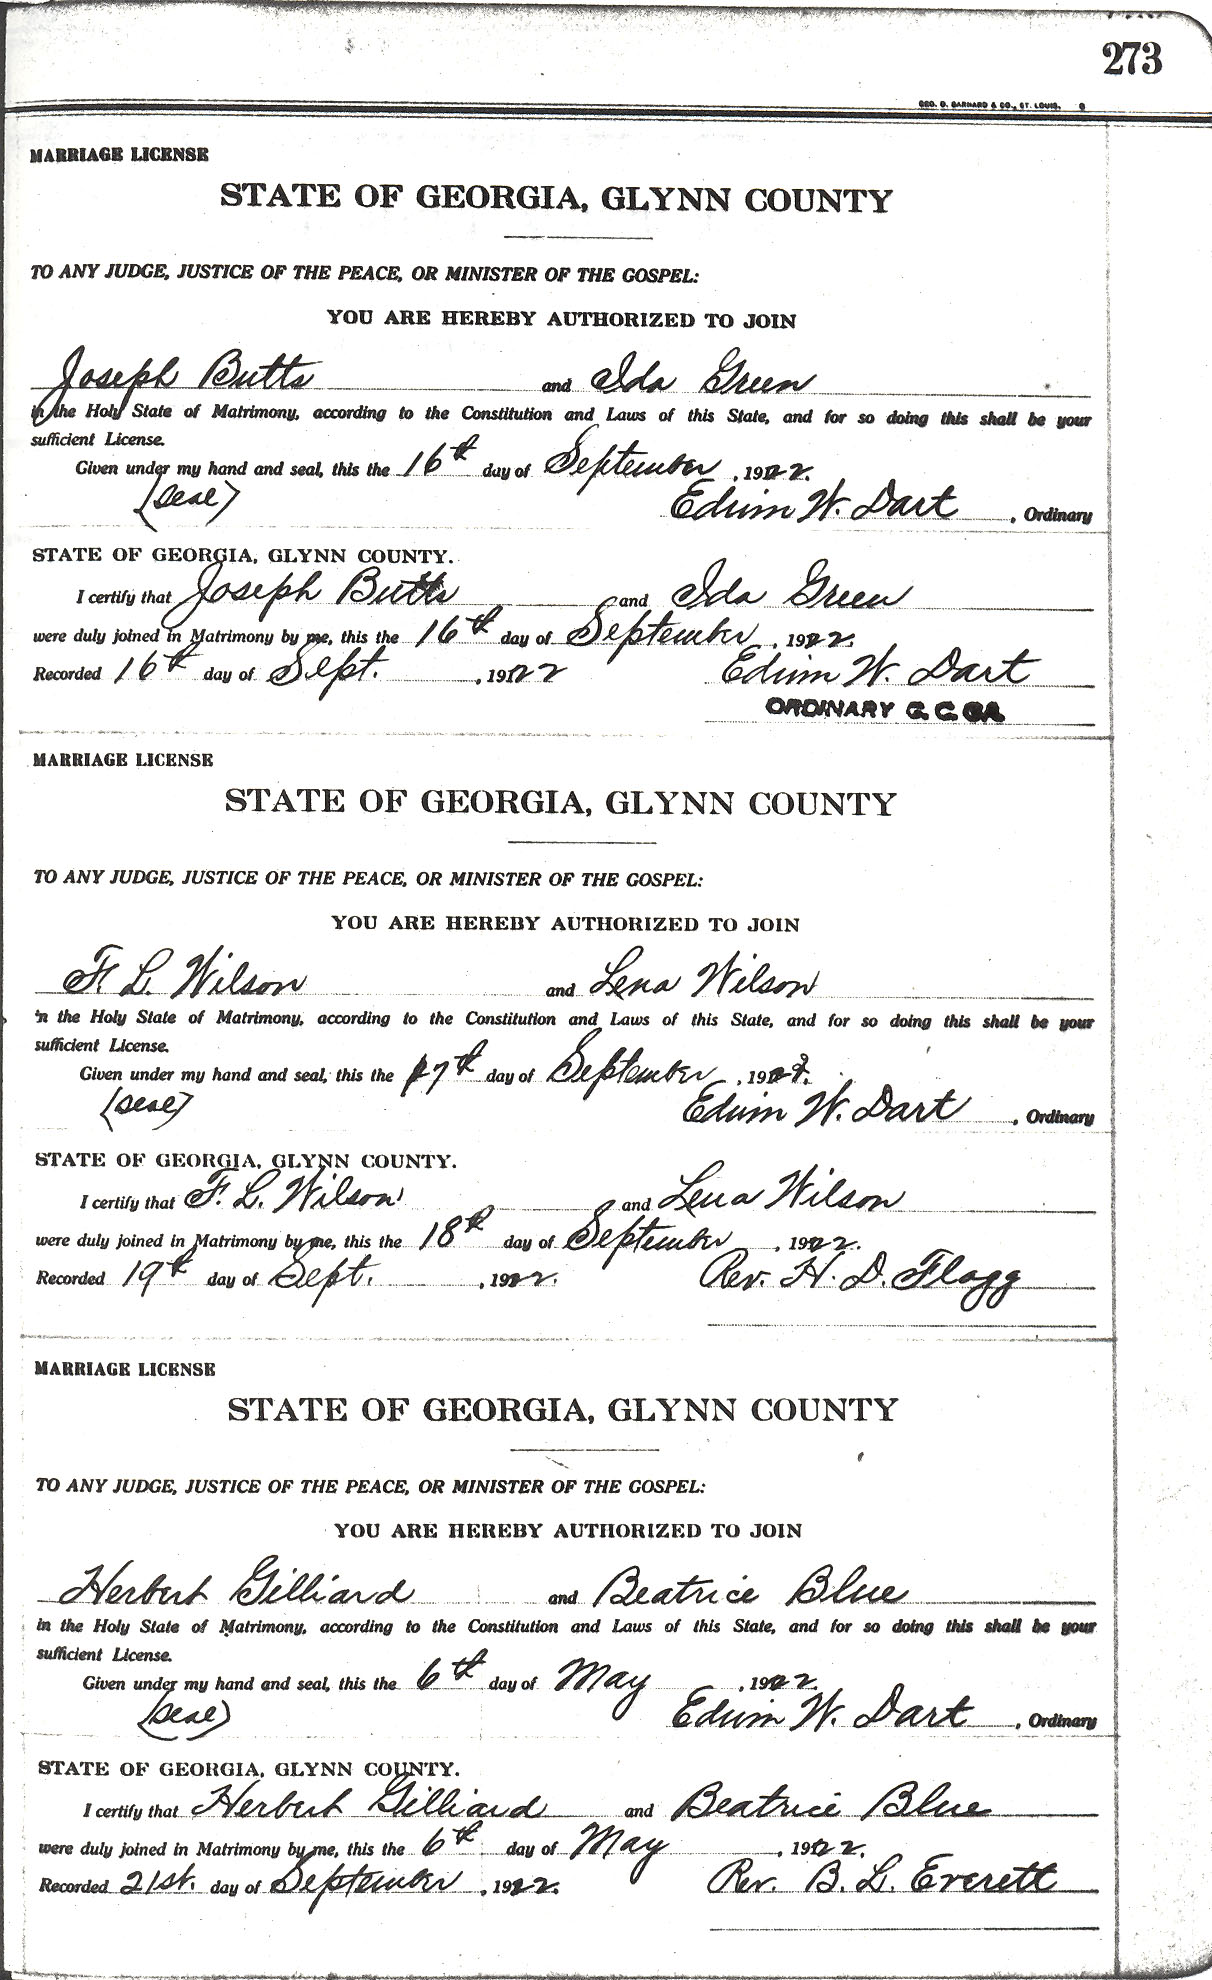 273
GEO. D. BARNARD & CO., ST. LOUIS.
MARRIAGE LICENSE
STATE OF GEORGIA, GLYNN COUNTY
TO ANY JUDGE, JUSTICE OF THE PEACE, OR MINISTER OF THE GOSPEL:
YOU ARE HEREBY AUTHORIZED TO JOIN
Joseph Butts and Ida Green
in the Holy State of Matrimony, according to the Constitution and Laws of this State, and for so doing this shall be your
sufficient License.
Given under my hand and seal, this the 16th day of September, 1922.
(seal) Edwin W. Dart, Ordinary
STATE OF GEORGIA, GLYNN COUNTY.
I certify that Joseph Butts and Ida Green
were duly joined in Matrimony by me, this the 16th day of September, 1922.
Recorded 16th day of Sept., 1922 Edwin W. Dart
ORDINARY G. C. GA
MARRIAGE LICENSE
STATE OF GEORGIA, GLYNN COUNTY
TO ANY JUDGE, JUSTICE OF THE PEACE, OR MINISTER OF THE GOSPEL:
YOU ARE HEREBY AUTHORIZED TO JOIN
F. L. Wilson and Lena Wilson
in the Holy State of Matrimony, according to the Constitution and Laws of this State, and for so doing this shall be your
sufficient License.
Given under my hand and seal, this the 17th day of September, 1922.
(seal) Edwin W. Dart, Ordinary
STATE OF GEORGIA, GLYNN COUNTY.
I certify that F. L. Wilson and Lena Wilson
were duly joined in Matrimony by me, this the 18th day of September, 1922.
Recorded 19th day of Sept., 1922. Rev. H. D. Flagg
MARRIAGE LICENSE
STATE OF GEORGIA, GLYNN COUNTY
TO ANY JUDGE, JUSTICE OF THE PEACE, OR MINISTER OF THE GOSPEL:
YOU ARE HEREBY AUTHORIZED TO JOIN
Herbert Gilliard and Beatrice Blue
in the Holy State of Matrimony, according to the Constitution and Laws of this State, and for so doing this shall be your
sufficient License.
Given under my hand and seal, this the 6th day of May, 1922.
(seal) Edwin W. Dart, Ordinary
STATE OF GEORGIA, GLYNN COUNTY.
I certify that Herbert Gilliard and Beatrice Blue
were duly joined in Matrimony by me, this the 6th day of May, 1922.
Recorded 21st. day of September, 1922. Rev. B. L. Everett